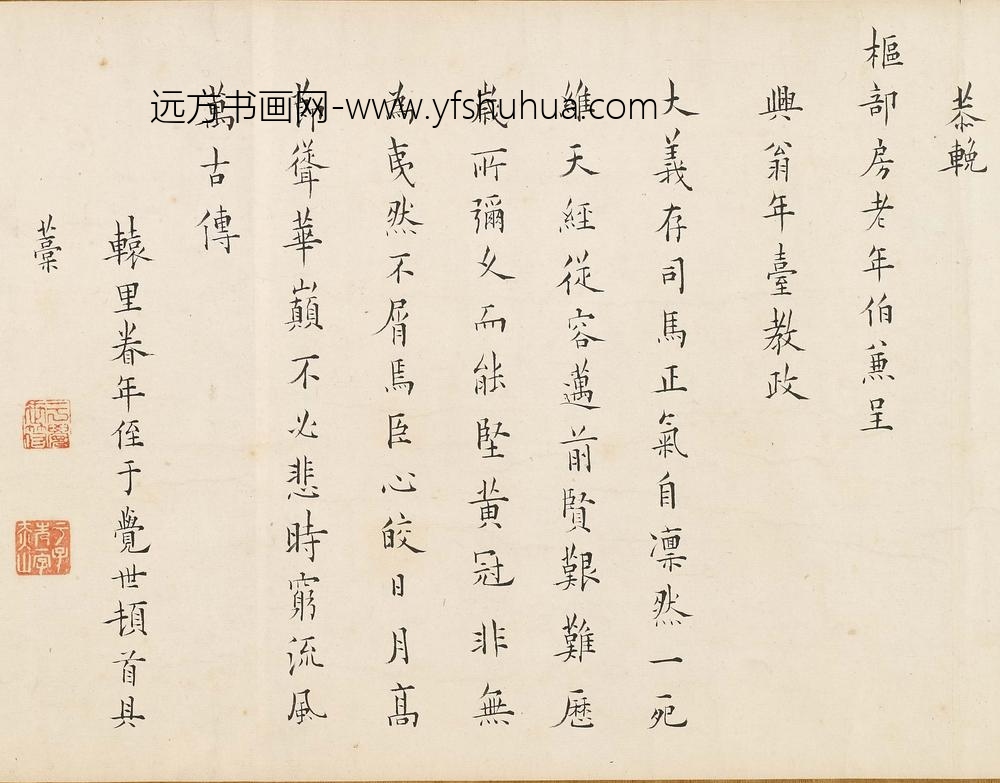 恭輓
樞部房老年伯兼呈
興翁年臺教政
大義存司馬正氣自凛然一死
維天經從容邁前賢艱難歷
歲所彌久而能堅黄冠非無
為夷然不屑焉臣心皎日月高
節聳華巔不必悲時窮流風
萬古傳
轅里眷年侄于覺世頓首具
藁
远方书画网-www.yfshuhua.com